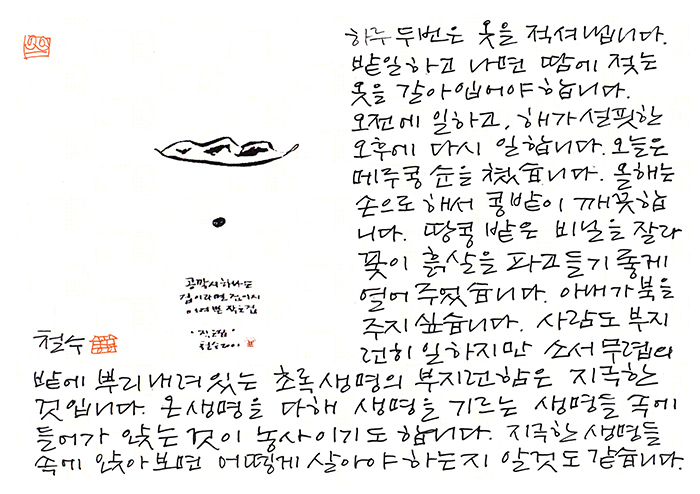 하루 두번은 옷을 적셔냅니다.
밭일하고 나면 땀에 젖는
옷을 갈아입어야 합니다.
오전에 일하고, 해가 설핏한
오후에 다시 일합니다. 오늘은
메주콩 순을 쳤습니다. 올해는
손으로 해서 콩밭이 깨끗합
니다. 땅콩 밭은 비닐을 잘라
꽃이 흙살을 파고들기 좋게
열어 주었습니다. 아내가 북을
주지 싶습니다. 사람도 부지
런히 일하지만 소서 무렵의
밭에 뿌리내려있는 초록생명의 부지런함은 지극한
것입니다. 온 생명을 다해 생명을 기르는 생명들 속에
들어가 앉는 것이 농사이기도 합니다. 지극한 생명들
속에 앉아보면 어떻게 살아야 하는지 알것도 같습니다.
콩깍지 하나도
집이라면 집이지
작은 집
철수